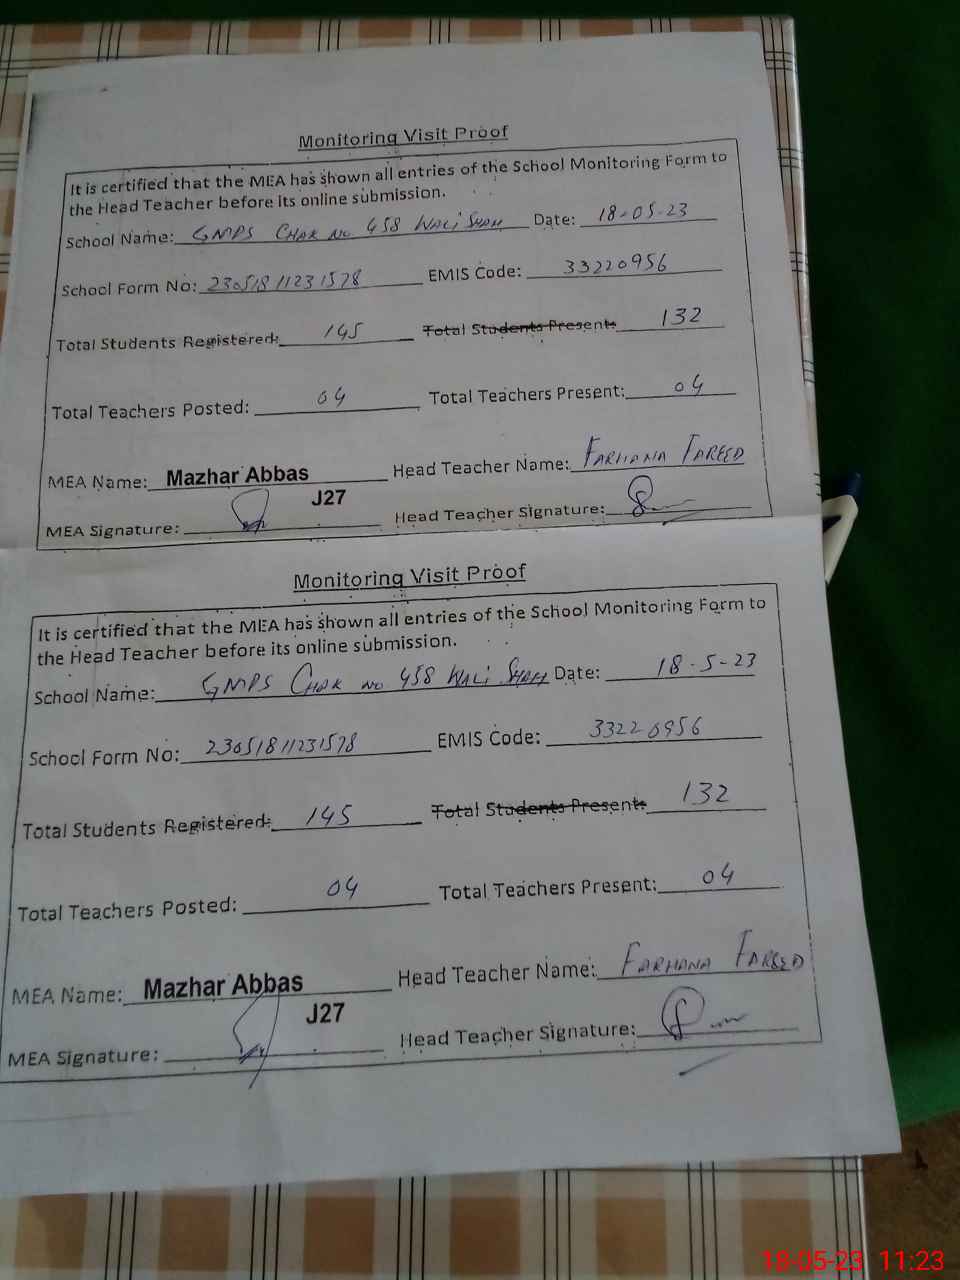 Monitoring Visit Proof
It is certified that the MEA has shown all entries of the School Monitoring Form to
the Head Teacher before its online submission.
School Name: GMPS CHAK NO 458 WALI SHAH Date: 18-05-23
School Form No: 23051811231578 EMIS Code: 33220956
Total Students Registered: 145 Total Students Present: 132
Total Teachers Posted: 04 Total Teachers Present: 04
MEA Name: Mazhar Abbas Head Teacher Name: FARHANA FAREED
J27
MEA Signature: Head Teacher Signature:
Monitoring Visit Proof
It is certified that the MEA has shown all entries of the School Monitoring Form to
the Head Teacher before its online submission.
School Name: GMPS CHAK NO 458 WALI SHAH Date: 18-5-23
School Form No: 23051811231578 EMIS Code: 33220956
Total Students Registered: 145 Total Students Present: 132
Total Teachers Posted: 04 Total Teachers Present: 04
MEA Name: Mazhar Abbas Head Teacher Name: FARHANA FAREED
J27
MEA Signature: Head Teacher Signature:
18-05-23 11:23